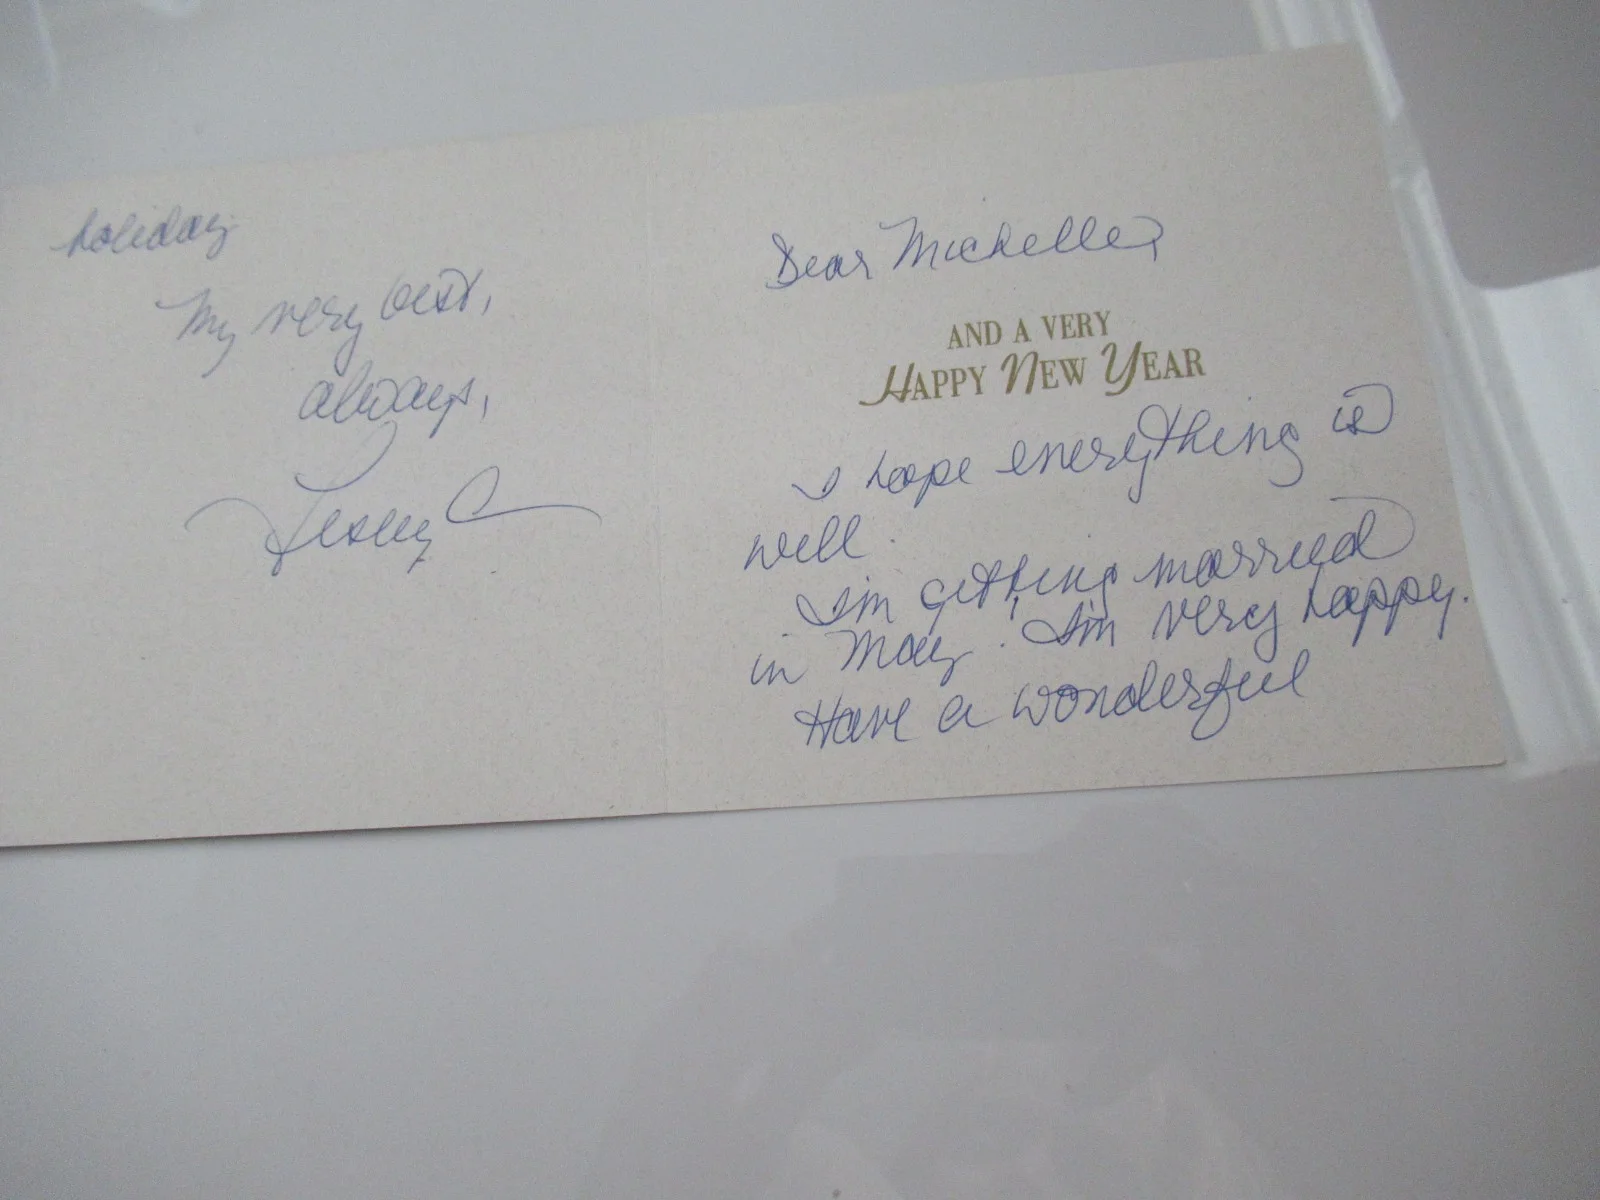 Dear Michelle,
AND A VERY
HAPPY NEW YEAR
I hope everything is
well.
I'm getting married
in May. I'm very happy.
Have a wonderful
holiday
My very best,
always,
Lesley